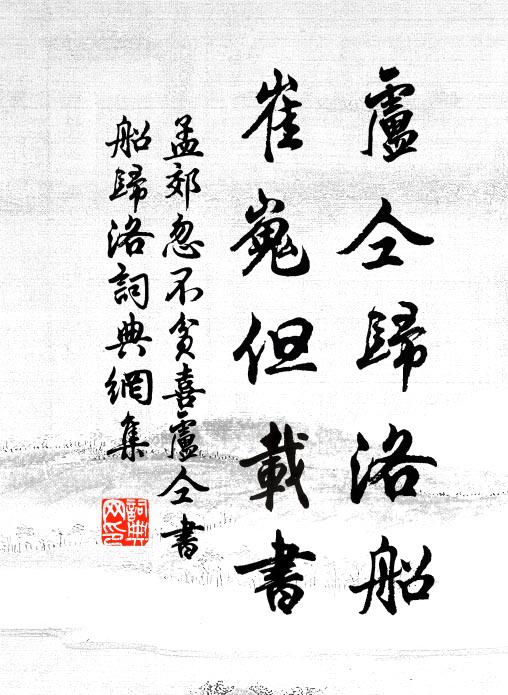 盧仝歸洛船
崔嵬但載書
孟郊忽不貧喜盧仝書
船歸洛詞典網集
詞典
网印